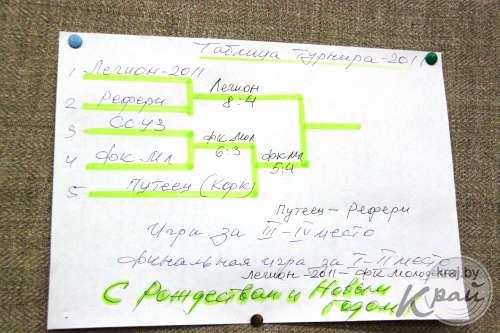 Таблица Турнира-2011
1 Легион-2011
Легион
8:4
2 Рефери
3 ССУЗ
ФК Мол
6:3
4 ФК Мл
ФК Мл
5:4
5 Путеец (Корк)
Путеец - Рефери
Игра за III-IV место
Финальная игра за I-II место
Легион-2011-ФК Молод
С Рождеством и Новым
годом
kraj.by
Край